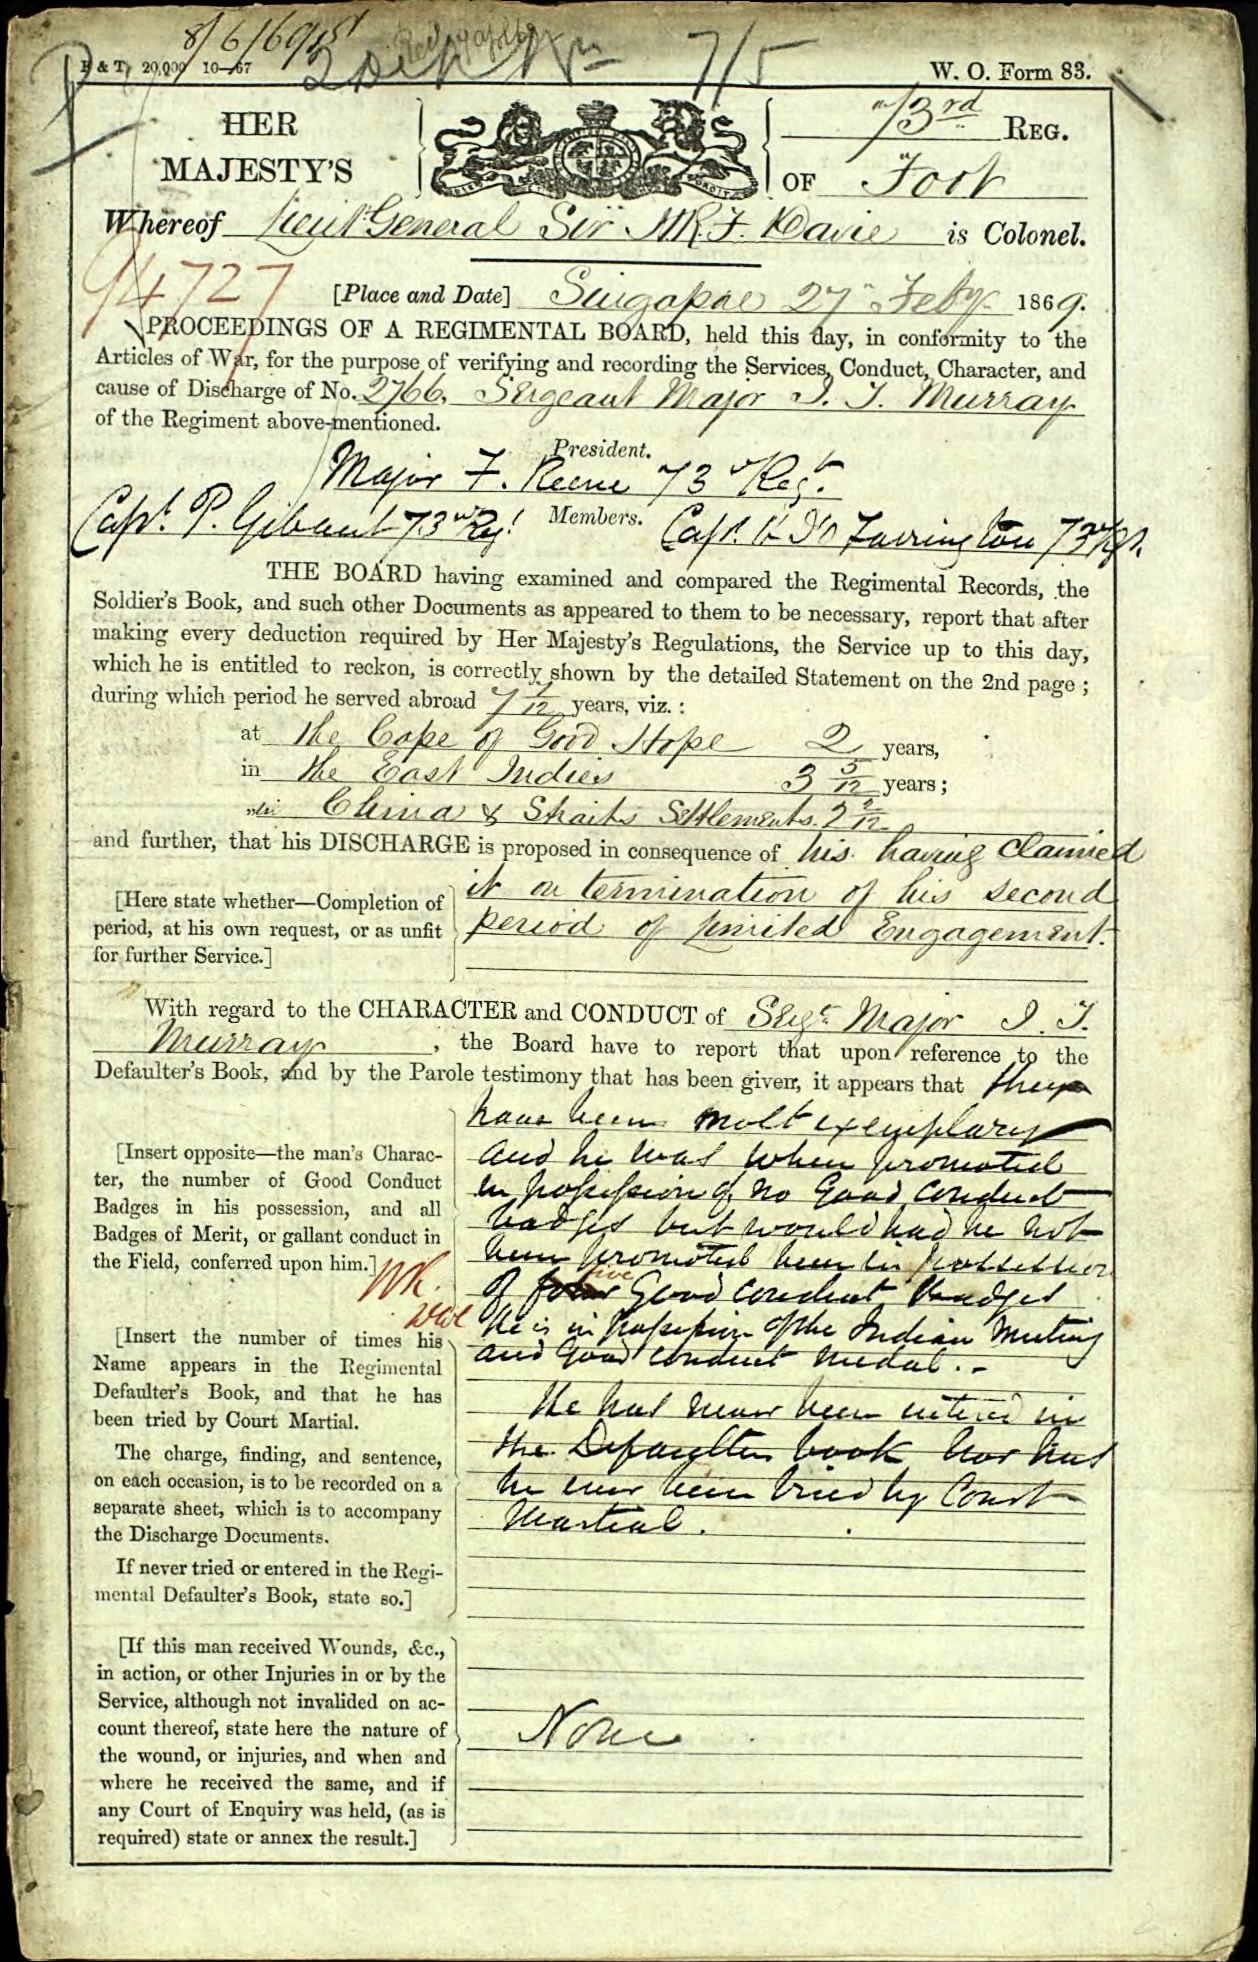 8/6/69
P & T. 20,000 10—67
7/5
W. O. Form 83.
HER
MAJESTY'S
73rd REG.
OF Foot
Whereof Lieut General Sir H.R.F. Davie is Colonel.
94727
[Place and Date] Singapore 27 Feby. 1869.
PROCEEDINGS OF A REGIMENTAL BOARD, held this day, in conformity to the
Articles of War, for the purpose of verifying and recording the Services, Conduct, Character, and
cause of Discharge of No. 2766, Sergeant Major I. J. Murray
of the Regiment above-mentioned.
President.
Major F. Reeve 73rd Regt.
Members.
Capt. P. Gibaut 73rd Regt
Capt. Farrington 73rd Regt.
THE BOARD having examined and compared the Regimental Records, the
Soldier's Book, and such other Documents as appeared to them to be necessary, report that after
making every deduction required by Her Majesty's Regulations, the Service up to this day,
which he is entitled to reckon, is correctly shown by the detailed Statement on the 2nd page ;
during which period he served abroad 7 1/12 years, viz. :
at the Cape of Good Hope 2 years,
in the East Indies 3 5/12 years ;
China & Straits Settlements
and further, that his DISCHARGE is proposed in consequence of his having claimed
it on termination of his second
period of limited Engagement.
[Here state whether—Completion of
period, at his own request, or as unfit
for further Service.]
With regard to the CHARACTER and CONDUCT of Sergt Major I. J.
Murray, the Board have to report that upon reference to the
Defaulter's Book, and by the Parole testimony that has been given, it appears that they
have been most exemplary
and he was when promoted
in possession of no Good Conduct
badges but would had he not
been promoted been in possession
of four five Good Conduct Badges
he is in possession of the Indian Mutiny
and Good Conduct Medal. -
He has never been entered in
the Defaulters book nor has
he ever been tried by Court
Martial.
[Insert opposite—the man's Charac-
ter, the number of Good Conduct
Badges in his possession, and all
Badges of Merit, or gallant conduct in
the Field, conferred upon him.]
[Insert the number of times his
Name appears in the Regimental
Defaulter's Book, and that he has
been tried by Court Martial.
The charge, finding, and sentence,
on each occasion, is to be recorded on a
separate sheet, which is to accompany
the Discharge Documents.
If never tried or entered in the Regi-
mental Defaulter's Book, state so.]
[If this man received Wounds, &c.,
in action, or other Injuries in or by the
Service, although not invalided on ac-
count thereof, state here the nature of
the wound, or injuries, and when and
where he received the same, and if
any Court of Enquiry was held, (as is
required) state or annex the result.]
None